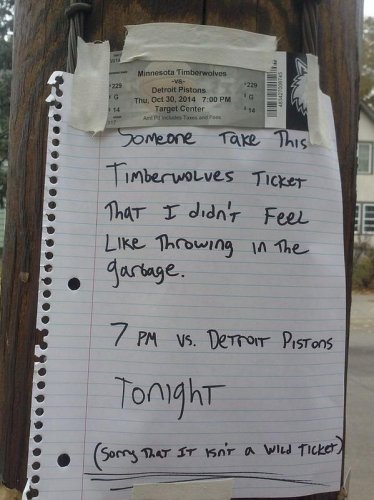 Minnesota Timberwolves
-vs-
Detroit Pistons
Thu, Oct 30, 2014 7:00 PM
Target Center
Amt Pd Includes Taxes and Fees
229
G
14
229
G
14
Someone Take This
Timberwolves Ticket
That I didn't Feel
Like Throwing in The
garbage.
7 PM vs. Detroit Pistons
Tonight
(Sorry That It isn't a Wild Ticket)